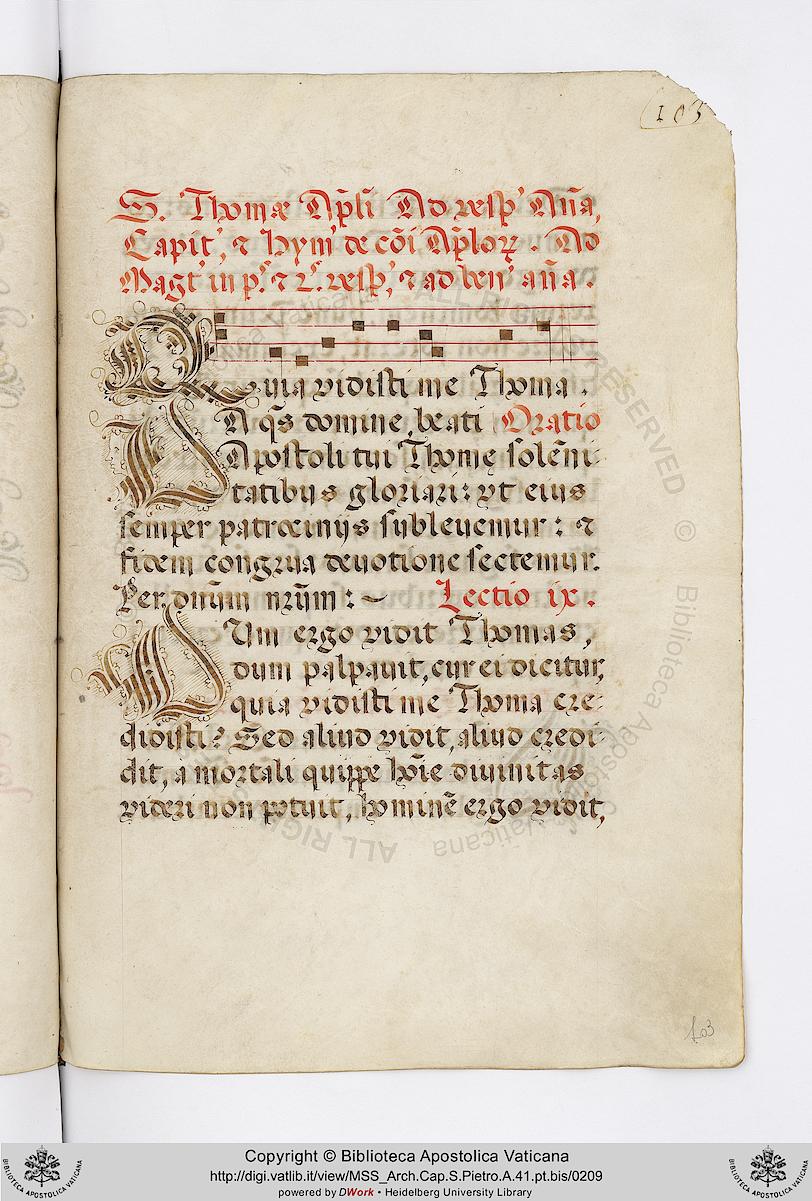 103
S. Thomæ Ap̃li Ad vesp' Aña,
Capit', ⁊ hym' de cõi Ap̃lorꝝ. Ad
Magt' in p.' ⁊ 2.' vesp', ⁊ ad ben' aña.
Quia vidisti me Thoma.
DA q̃s domine, beati Oratio
Apostoli tui Thomę solẽni
tatibus gloriari: vt eius
semper patrocinijs subleuemur: ⁊
fidem congrua deuotione sectemur.
Per. dñum nr̃um: ~ Lectio ix.
CUm ergo vidit Thomas,
dum palpauit, cur ei dicitur,
quia vidisti me Thoma cre-
didisti? Sed aliud vidit, aliud credi-
dit, a mortali quippe hoĩe diuinitas
videri non potuit, hominẽ ergo vidit,
103
ALL RIGHTS RESERVED © Biblioteca Apostolica Vaticana
Copyright © Biblioteca Apostolica Vaticana
http://digi.vatlib.it/view/MSS_Arch.Cap.S.Pietro.A.41.pt.bis/0209
powered by DWork • Heidelberg University Library
BIBLIOTECA APOSTOLICA VATICANA
BIBLIOTECA APOSTOLICA VATICANA